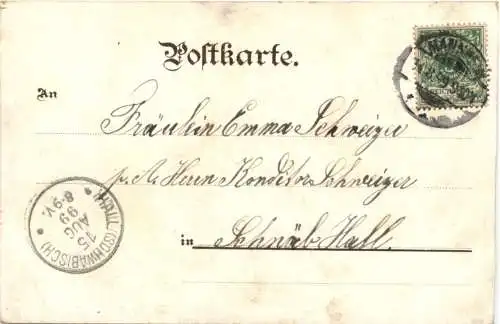 Postkarte.
An
Fräulein Emma Schweizer
p. A. Herrn Konditor Schweizer
in Schwäb. Hall.
HALL (SCHWÄBISCH)
15
AUG
99
8-9V.
MANN